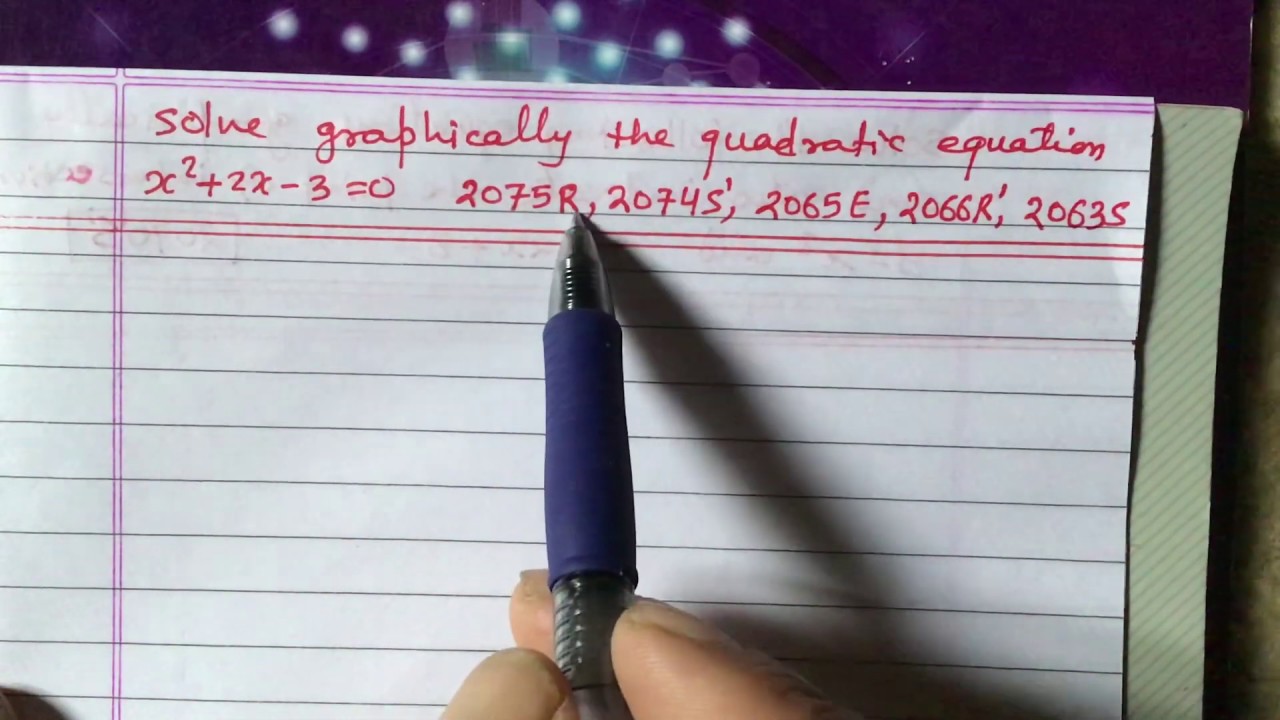 solve graphically the quadratic equation
x²+2x-3=0 2075R, 2074S', 2065E, 2066R', 2063S